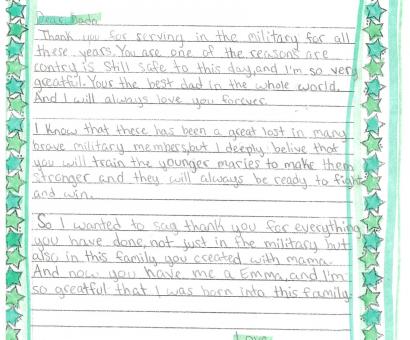 Dear Dada,
Thank you for serving in the military for all
these years. You are one of the reasons are
contry is still safe to this day, and I'm so very
greatful. Your the best dad in the whole world.
And I will always love you forever.
I know that there has been a great lost in many
brave military members, but I deeply belive that
you will train the younger maries to make them
stranger and they will always be ready to fight
and win.
So I wanted to say thank you for everything
you have done, not just in the military but
also in this family you created with mama.
And now you have me a Emma, and I'm
so greatful that I was born into this family.
Love